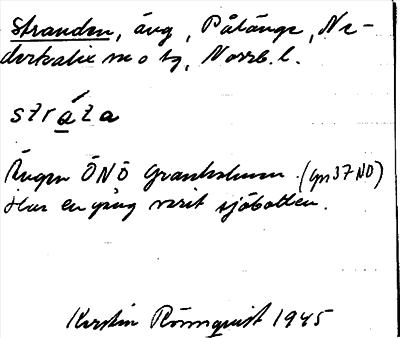 Stranden, äng, Pålänge, Ne-
derkalix sn o tg, Norrb. l.
stráta
Ängen ÖNÖ Granholmen. (gn37NO)
Har en gång varit sjöbotten.
Kerstin Rönnquist 1945